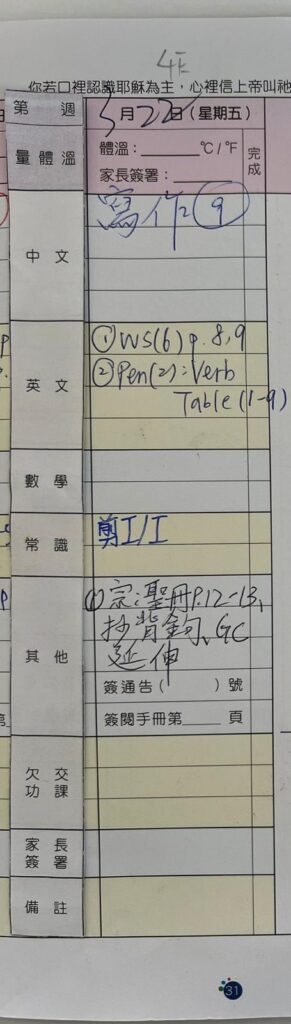 4E
你若口裡認識耶穌為主，心裡信上帝叫祂
第 週 5月22日(星期五)
量體溫 體溫：______℃/℉ 完成
家長簽署：______
中文 寫作 ⑨
英文 ① WS(6) p.8,9
② Pen(2):Verb
Table (1-9)
數學
常識 剪I/I
其他 ① 宗:聖冊P.12-13、
抄背鈎、GC
延伸
簽通告( )號
簽閱手冊第____頁
欠交
功課
家長
簽署
備註
31